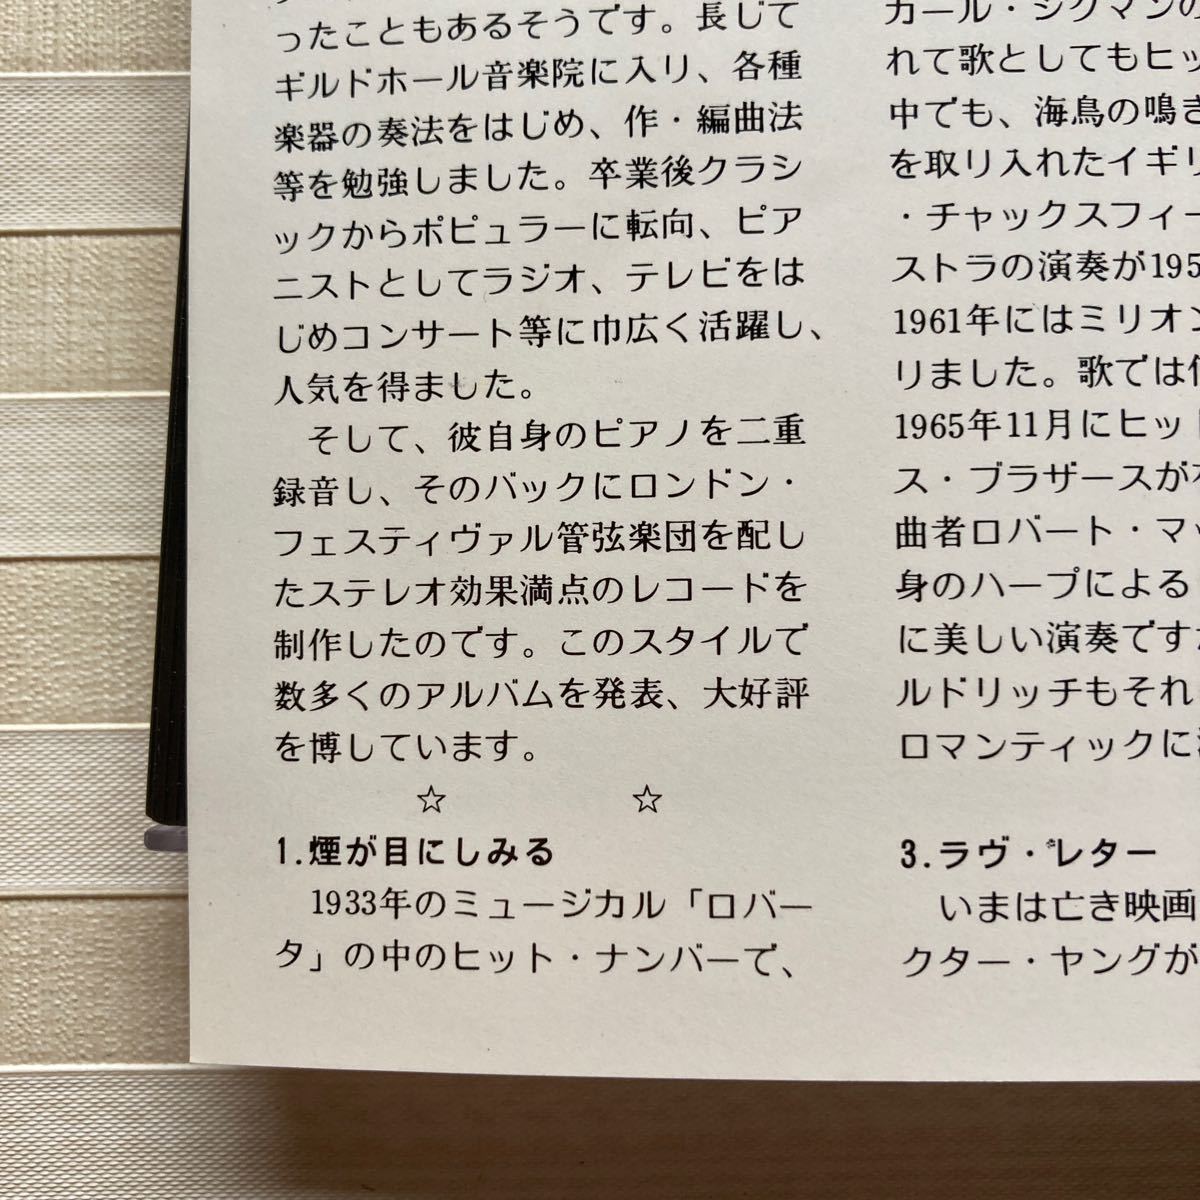 ったこともあるそうです。長じて
ギルドホール音楽院に入り、各種
楽器の奏法をはじめ、作・編曲法
等を勉強しました。卒業後クラシ
ックからポピュラーに転向、ピア
ニストとしてラジオ、テレビをは
じめコンサート等に巾広く活躍し、
人気を得ました。
そして、彼自身のピアノを二重
録音し、そのバックにロンドン・
フェスティヴァル管弦楽団を配し
たステレオ効果満点のレコードを
制作したのです。このスタイルで
数多くのアルバムを発表、大好評
を博しています。
☆ ☆
1.煙が目にしみる
1933年のミュージカル「ロバー
タ」の中のヒット・ナンバーで、
カール・シグマンの
れて歌としてもヒッ
中でも、海鳥の鳴き
を取り入れたイギリ
・チャックスフィー
ストラの演奏が195
1961年にはミリオン
りました。歌では
1965年11月にヒット
ス・ブラザースが
曲者ロバート・マッ
身のハープによる
に美しい演奏ですが
ルドリッチもそれ
ロマンティックに
3.ラヴ・レター
いまは亡き映画
クター・ヤングが